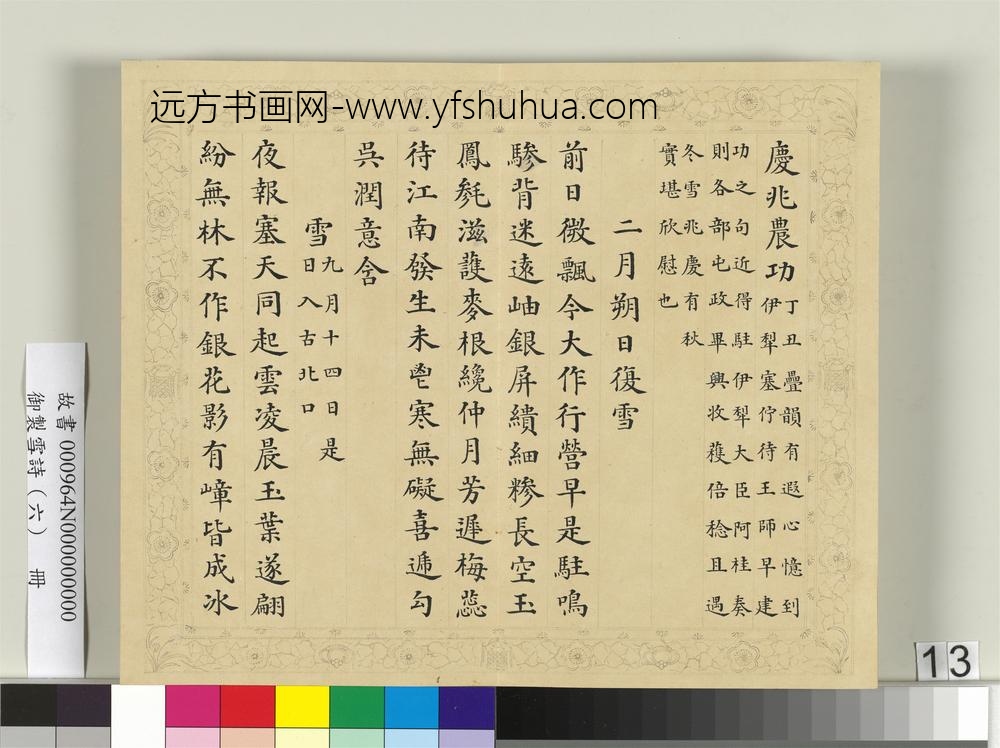 远方书画网-www.yfshuhua.com
慶兆農功
丁丑疊韻有遐心憶到
伊犂塞佇待王師早建
功之句近得駐伊犂大臣阿桂奏
則各部屯政畢興收穫倍稔且遇
冬雪兆慶有秋
實堪欣慰也
二月朔日復雪
前日微飄今大作行營早是駐鳴
驂背迷遠岫銀屏繢細糝長空玉
鳳毿滋護麥根纔仲月芳遲梅蕊
待江南發生未鬯寒無礙喜遞勾
吳潤意含
雪
九月十四日是
日入古北口
夜報塞天同起雲凌晨玉葉遂翩
紛無林不作銀花影有嶂皆成冰
故書 000964N000000000
御製雪詩（六） 冊
13